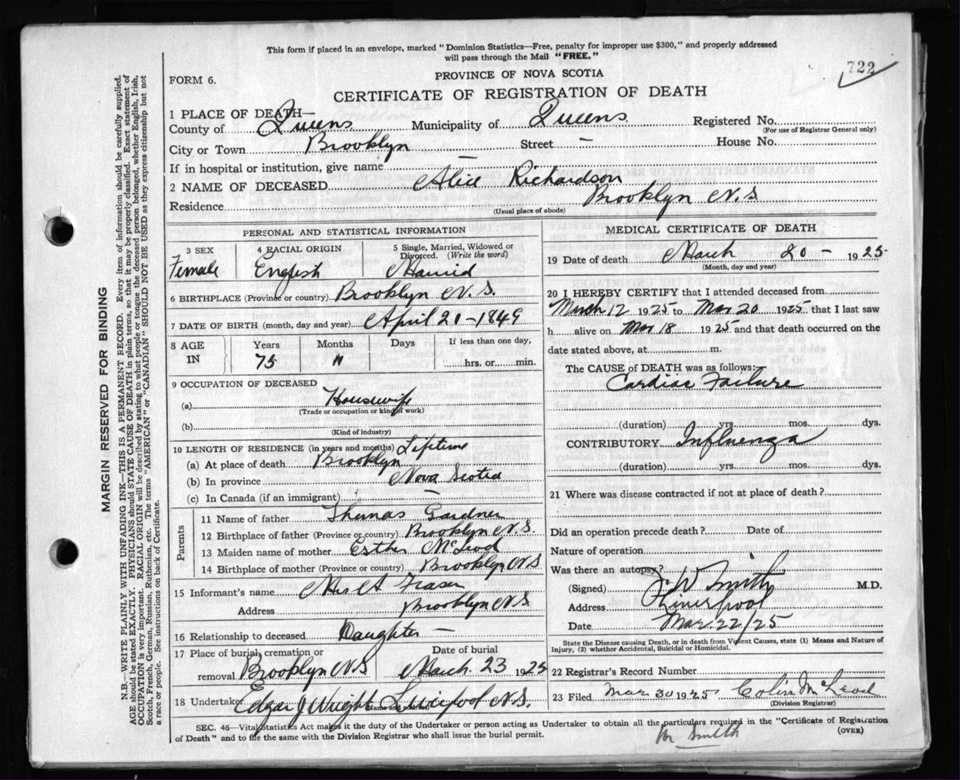 This form if placed in an envelope, marked "Dominion Statistics—Free, penalty for improper use $300," and properly addressed
will pass through the Mail "FREE."
722
FORM 6.
PROVINCE OF NOVA SCOTIA
CERTIFICATE OF REGISTRATION OF DEATH
1 PLACE OF DEATH—
County of Queens Municipality of Queens Registered No.
(For use of Registrar General only)
City or Town Brooklyn Street — House No.
If in hospital or institution, give name —
2 NAME OF DECEASED Alice Richardson
Residence Brooklyn N.S
(Usual place of abode)
PERSONAL AND STATISTICAL INFORMATION
3 SEX 4 RACIAL ORIGIN 5 Single, Married, Widowed or Divorced. (Write the word)
Female English Married
6 BIRTHPLACE (Province or country) Brooklyn N.S.
7 DATE OF BIRTH (month, day and year) April 21-1849
8 AGE IN Years Months Days If less than one day,
75 11 hrs. or min.
9 OCCUPATION OF DECEASED
(a) Housewife
(Trade or occupation or kind of work)
(b)
(Kind of industry)
10 LENGTH OF RESIDENCE (in years and months) Liftime
(a) At place of death Brooklyn
(b) In province Nova Scotia
(c) In Canada (if an immigrant) —
Parents
11 Name of father Thomas Gardner
12 Birthplace of father (Province or country) Brooklyn N.S.
13 Maiden name of mother Esther McLeod
14 Birthplace of mother (Province or country) Brooklyn N S
15 Informant's name Mrs A Fraser
Address Brooklyn N.S.
16 Relationship to deceased Daughter —
17 Place of burial, cremation or removal Brooklyn N.S Date of burial March 23 1925
18 Undertaker Edgar J Wright Liverpool N.S.
MEDICAL CERTIFICATE OF DEATH
19 Date of death March 20 – 1925
(Month, day and year)
20 I HEREBY CERTIFY that I attended deceased from
March 12 1925 to Mar 20 1925 that I last saw
h alive on Mar 18 1925 and that death occurred on the
date stated above, at m.
The CAUSE of DEATH was as follows:
Cardiac Failure
(duration) yrs. mos. dys.
CONTRIBUTORY Influenza
(duration) yrs. mos. dys.
21 Where was disease contracted if not at place of death?
Did an operation precede death? Date of
Nature of operation
Was there an autopsy?
(Signed) W Smith M.D.
Address Liverpool
Date Mar. 22/25
State the Disease causing Death, or in death from Violent Causes, state (1) Means and Nature of
Injury, (2) whether Accidental, Suicidal or Homicidal.
22 Registrar's Record Number
23 Filed Mar 30 1925 Colin McLeod
(Division Registrar)
SEC. 46—Vital Statistics Act makes it the duty of the Undertaker or person acting as Undertaker to obtain all the particulars required in the "Certificate of Registration
of Death" and to file the same with the Division Registrar who shall issue the burial permit.
Smith
(OVER)
MARGIN RESERVED FOR BINDING
N.B.—WRITE PLAINLY WITH UNFADING INK—THIS IS A PERMANENT RECORD. Every item of information should be carefully supplied.
AGE should be stated EXACTLY. PHYSICIANS should STATE CAUSE OF DEATH in plain terms, so that it may be properly classified. Exact statement of
OCCUPATION is very important. RACIAL ORIGIN will be described by stating to what people or tongue the deceased person belonged, whether English, Irish,
Scotch, French, German, Russian, Ruthenian, etc. The terms "AMERICAN" or "CANADIAN" SHOULD NOT BE USED as they express citizenship but not
a race or people. See instructions on back of Certificate.